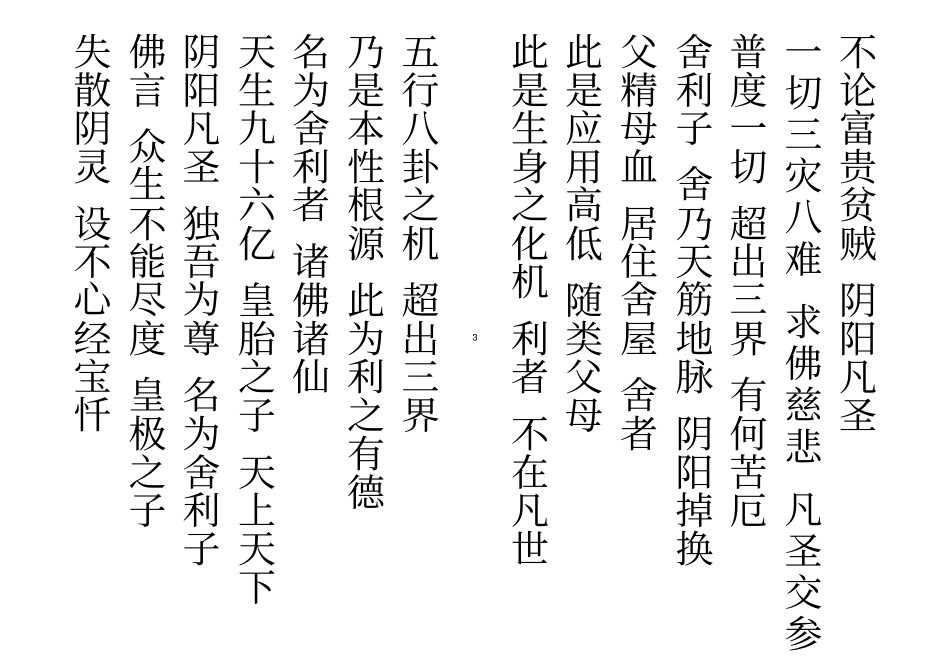 不论富贵贫贱 阴阳凡圣
一切三灾八难 求佛慈悲 凡圣交参
普度一切 超出三界 有何苦厄
舍利子 舍乃天筋地脉 阴阳掉换
父精母血 居住舍屋 舍者
此是应用高低 随类父母
此是生身之化机 利者 不在凡世
3
五行八卦之机 超出三界
乃是本性根源 此为利之有德
名为舍利者 诸佛诸仙
天生九十六亿 皇胎之子 天上天下
阴阳凡圣 独吾为尊 名为舍利子
佛言 众生不能尽度 皇极之子
失散阴灵 设不心经宝忏